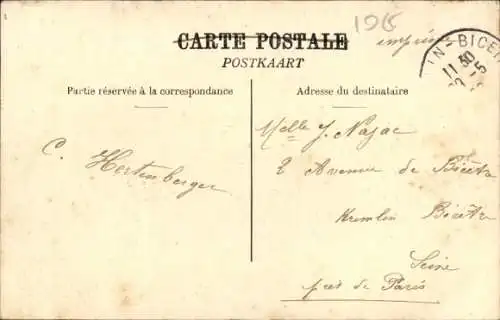 1915
CARTE POSTALE
imprimé
POSTKAART
IN-BICE
11 30
Partie réservée à la correspondance
Adresse du destinataire
Melle J. Najac
C. Hertenberger
2 Avenue de Bicêtre
Kremlin Bicêtre
Seine
près de Paris